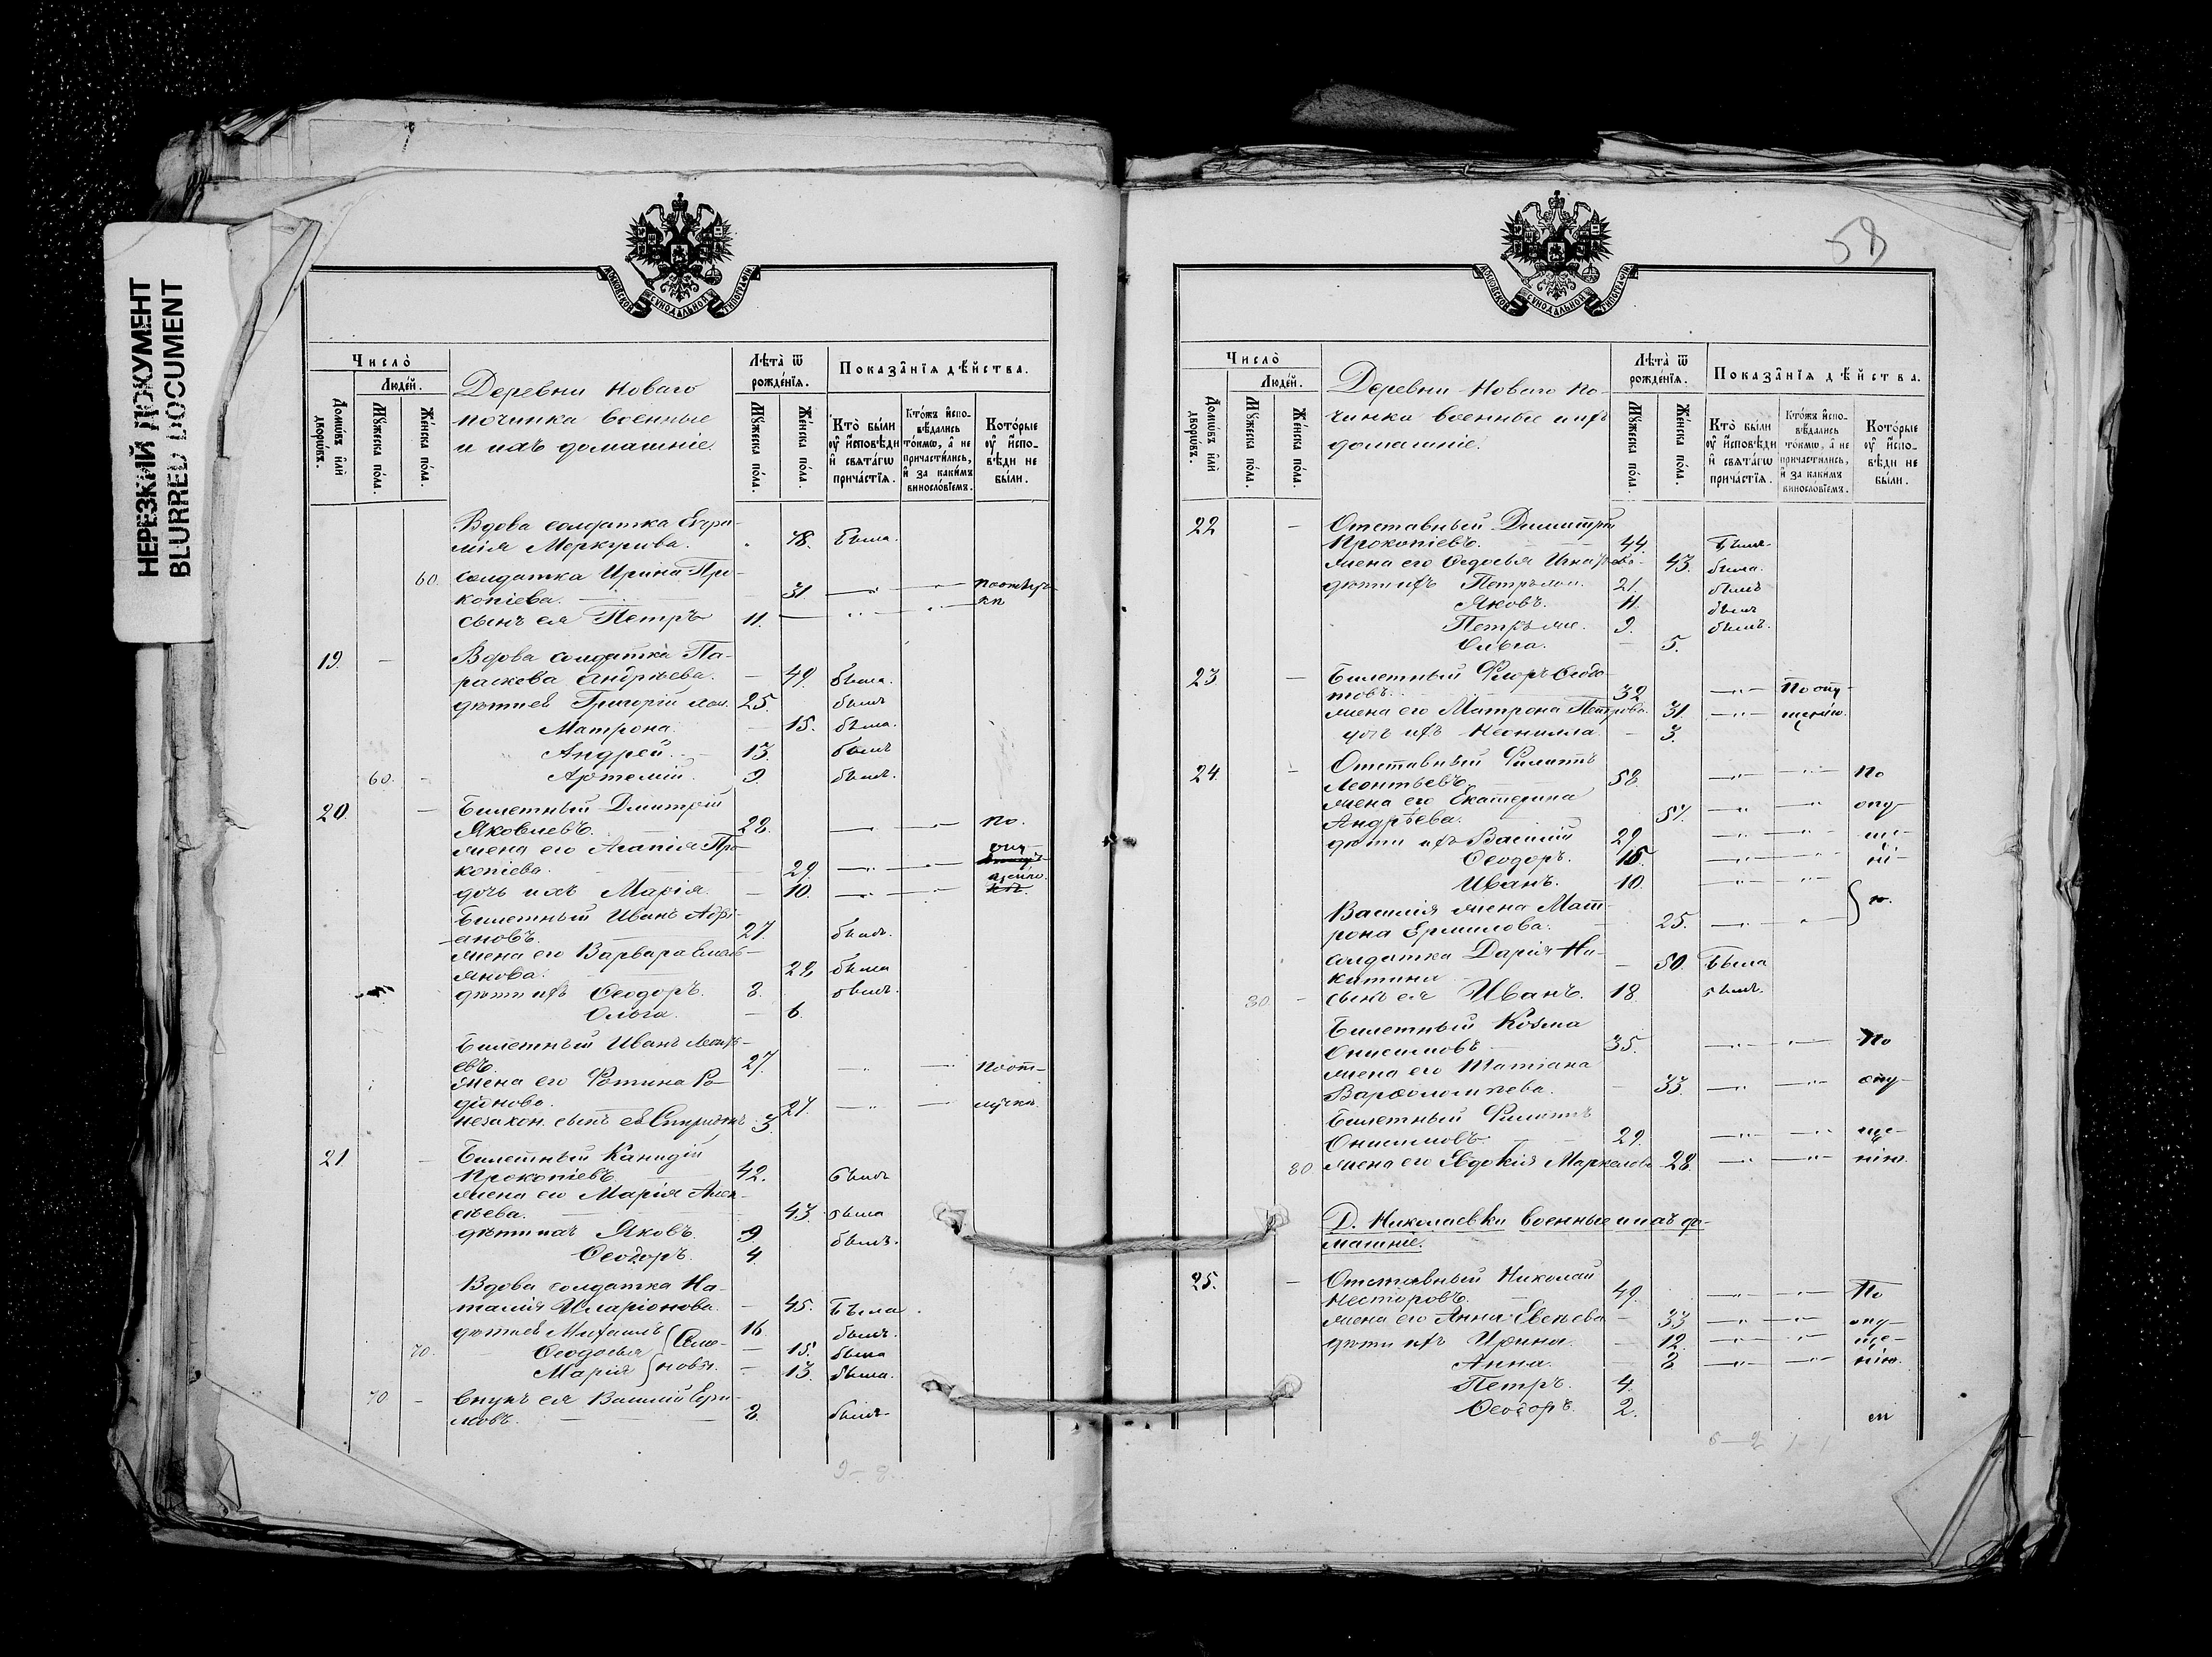 НЕРЕЗКИЙ ДОКУМЕНТ
BLURRED DOCUMENT
МОСКОВСКОЙ СѴНОДАЛЬНОЙ ТИПОГРАФІИ
Число̀
Люде́й.
Домѡ́въ и҆лѝ дворѡ́въ.
Мꙋ́жеска по́ла.
Же́нска по́ла.
Деревни Новаго
починка военные
и ихъ домашніе.
Лѣта̀ ѿ рожде́нїѧ.
Мꙋ́жеска по́ла.
Же́нска по́ла.
Показа̑нїѧ дѣ́йства.
Кто̀ бы́ли оу҆ и҆сповѣ́ди и҆ свѧта́гѡ прича́стїѧ.
Кто́жъ и҆спо- вѣ́дались то́кмѡ, а҆ не причасти́лись, и҆ за каки́мъ винослóвїемъ.
Кото́рые оу҆ и҆спо- вѣ́ди не бы́ли.
Вдова солдатка Евфи-
мія Меркурива. 48. Была.
60. солдатка Ирина Про-
копіева. 31.
сынъ ея Петръ 11.
19. Вдова солдатка Па-
раскева Андреева. 49. была.
дѣти ея Григорій хол. 25. былъ
Матрона. 15. была.
Андрей. 13. былъ
60. Артемій. 9 былъ.
20. Билетный Димитрій
Яковлевъ. 28. По
жена его Агапія Про- опу-
копіева. 29. щенію.
дочь ихъ Марія. 10.
Билетный Иванъ Адрі-
ановъ. 27. былъ.
жена его Варвара Емель-
янова. 28 была
дѣти ихъ Ѳеодоръ. 8. былъ.
Ольга. 6.
Билетный Иванъ Леонть-
евъ. 27. По от-
жена его Фотина Ро-
діонова. 27. лучкѣ.
незакон. сынъ ея Спиридонъ 3.
21. Билетный Канидій
Прокопіевъ. 42. былъ
жена его Марія Алек-
сѣева. 43. была
дѣти ихъ Яковъ. 9. былъ.
Ѳеодоръ. 4.
Вдова солдатка На-
талія Иларіонова. 45. Была.
дѣти ея Михаилъ 16. былъ.
70. Ѳеодосья Семе- 15. была
Марія новы. 13. была.
70 внукъ ея Василій Ефи-
мовъ. 8. былъ
9 – 8.
58
МОСКОВСКОЙ СѴНОДАЛЬНОЙ ТИПОГРАФІИ
Число̀
Люде́й.
Домѡ́въ и҆лѝ дворѡ́въ.
Мꙋ́жеска по́ла.
Же́нска по́ла.
Деревни Новаго по-
чинка военные и ихъ
домашніе.
Лѣта̀ ѿ рожде́нїѧ.
Мꙋ́жеска по́ла.
Же́нска по́ла.
Показа̑нїѧ дѣ́йства.
Кто̀ бы́ли оу҆ и҆сповѣ́ди и҆ свѧта́гѡ прича́стїѧ.
Кто́жъ и҆спо- вѣ́дались то́кмѡ, а҆ не причасти́лись, и҆ за каки́мъ винослóвїемъ.
Кото́рые оу҆ и҆спо- вѣ́ди не бы́ли.
22 Отставный Димитрій
Прокопіевъ. 44. Былъ
жена его Ѳедосья Игнатьева. 43. была.
дѣти ихъ Петръ хол. 21. былъ
Яковъ. 11. былъ
Петръ ме. 9. былъ.
Ольга. 5.
23 Билетный Флоръ Ѳедо-
товъ. 32 По опу-
жена его Матрона Петрова. 31. щенію.
дочь ихъ Неонилла. 3.
24. Отставный Филиппъ
Леонтьевъ. 58. По
жена его Екатерина
Андреева. 57. опу-
дѣти ихъ Василій 29. ще-
Ѳеодоръ. 15. ні-
Иванъ. 10.
Василія жена Мат- ю.
рона Ермилова. 25.
солдатка Дарія Ни-
китина 50. Была
80. сынъ ея Иванъ. 18. былъ.
Билетный Козма
Онисимовъ 35. По
жена его Татіана
Варѳоломеева. 33. опу-
Билетный Филиппъ
Онисимовъ. 29. ще-
80. жена его Евдокія Маркелова 28. нію.
Д. Николаевки военные и ихъ до-
машніе.
25. Отставный Николай
Несторовъ. 49. По
жена его Анна Евсѣева 33 опу-
дѣти ихъ Ирина. 12. ще-
Анна. 8 нію.
Петръ. 4.
Ѳеодоръ. 2.